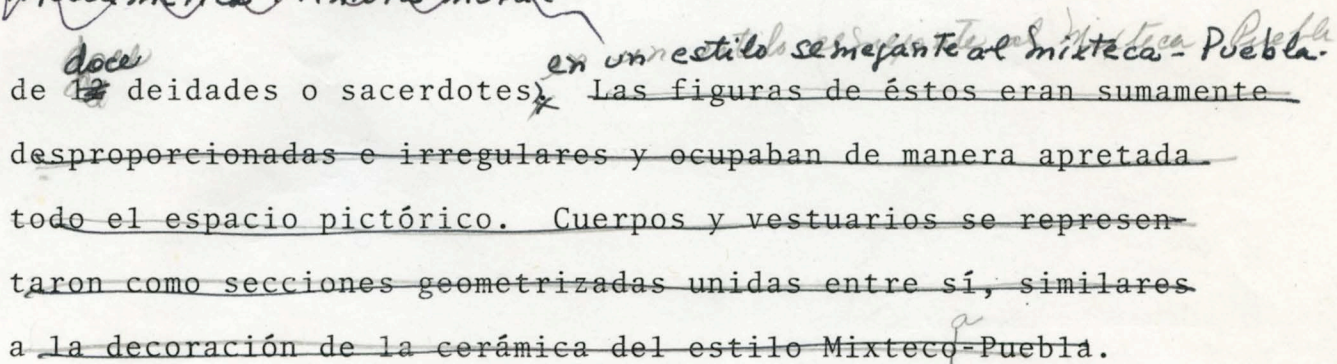 doce
en un estilo semejante al mixteca-Puebla.
de 12 deidades o sacerdotes, Las figuras de éstos eran sumamente
desproporcionadas e irregulares y ocupaban de manera apretada
todo el espacio pictórico. Cuerpos y vestuarios se represen-
taron como secciones geometrizadas unidas entre sí, similares
a
a la decoración de la cerámica del estilo Mixteco-Puebla.